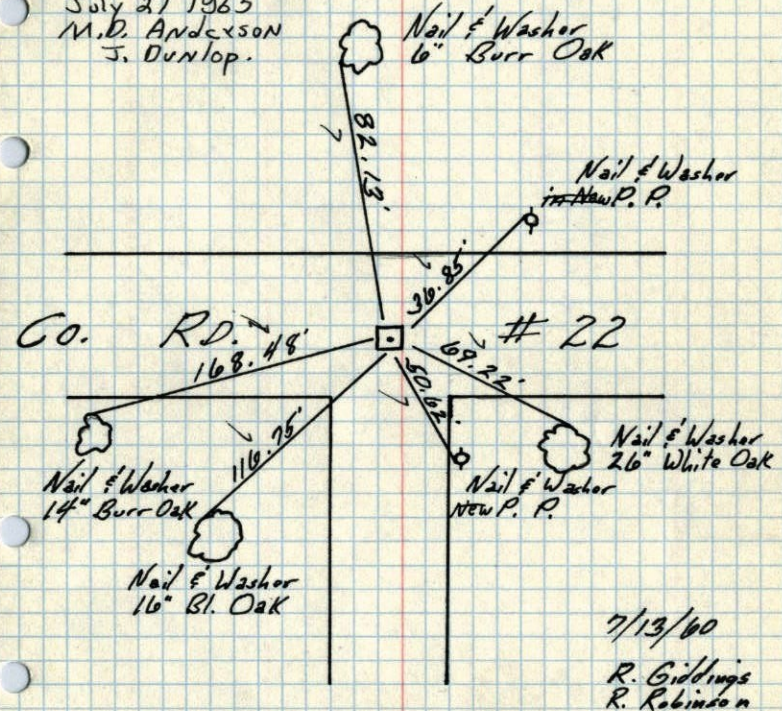 July 21 1965
M.D. Anderson
J. Dunlop.
Nail & Washer
6" Burr Oak
82.13'
Nail & Washer
in New P. P.
36.85'
Co. RD. # 22
168.48'
69.22'
50.62'
116.75'
Nail & Washer
14" Burr Oak
Nail & Washer
26" White Oak
Nail & Washer
New P. P.
Nail & Washer
16" Bl. Oak
7/13/60
R. Giddings
R. Robinson